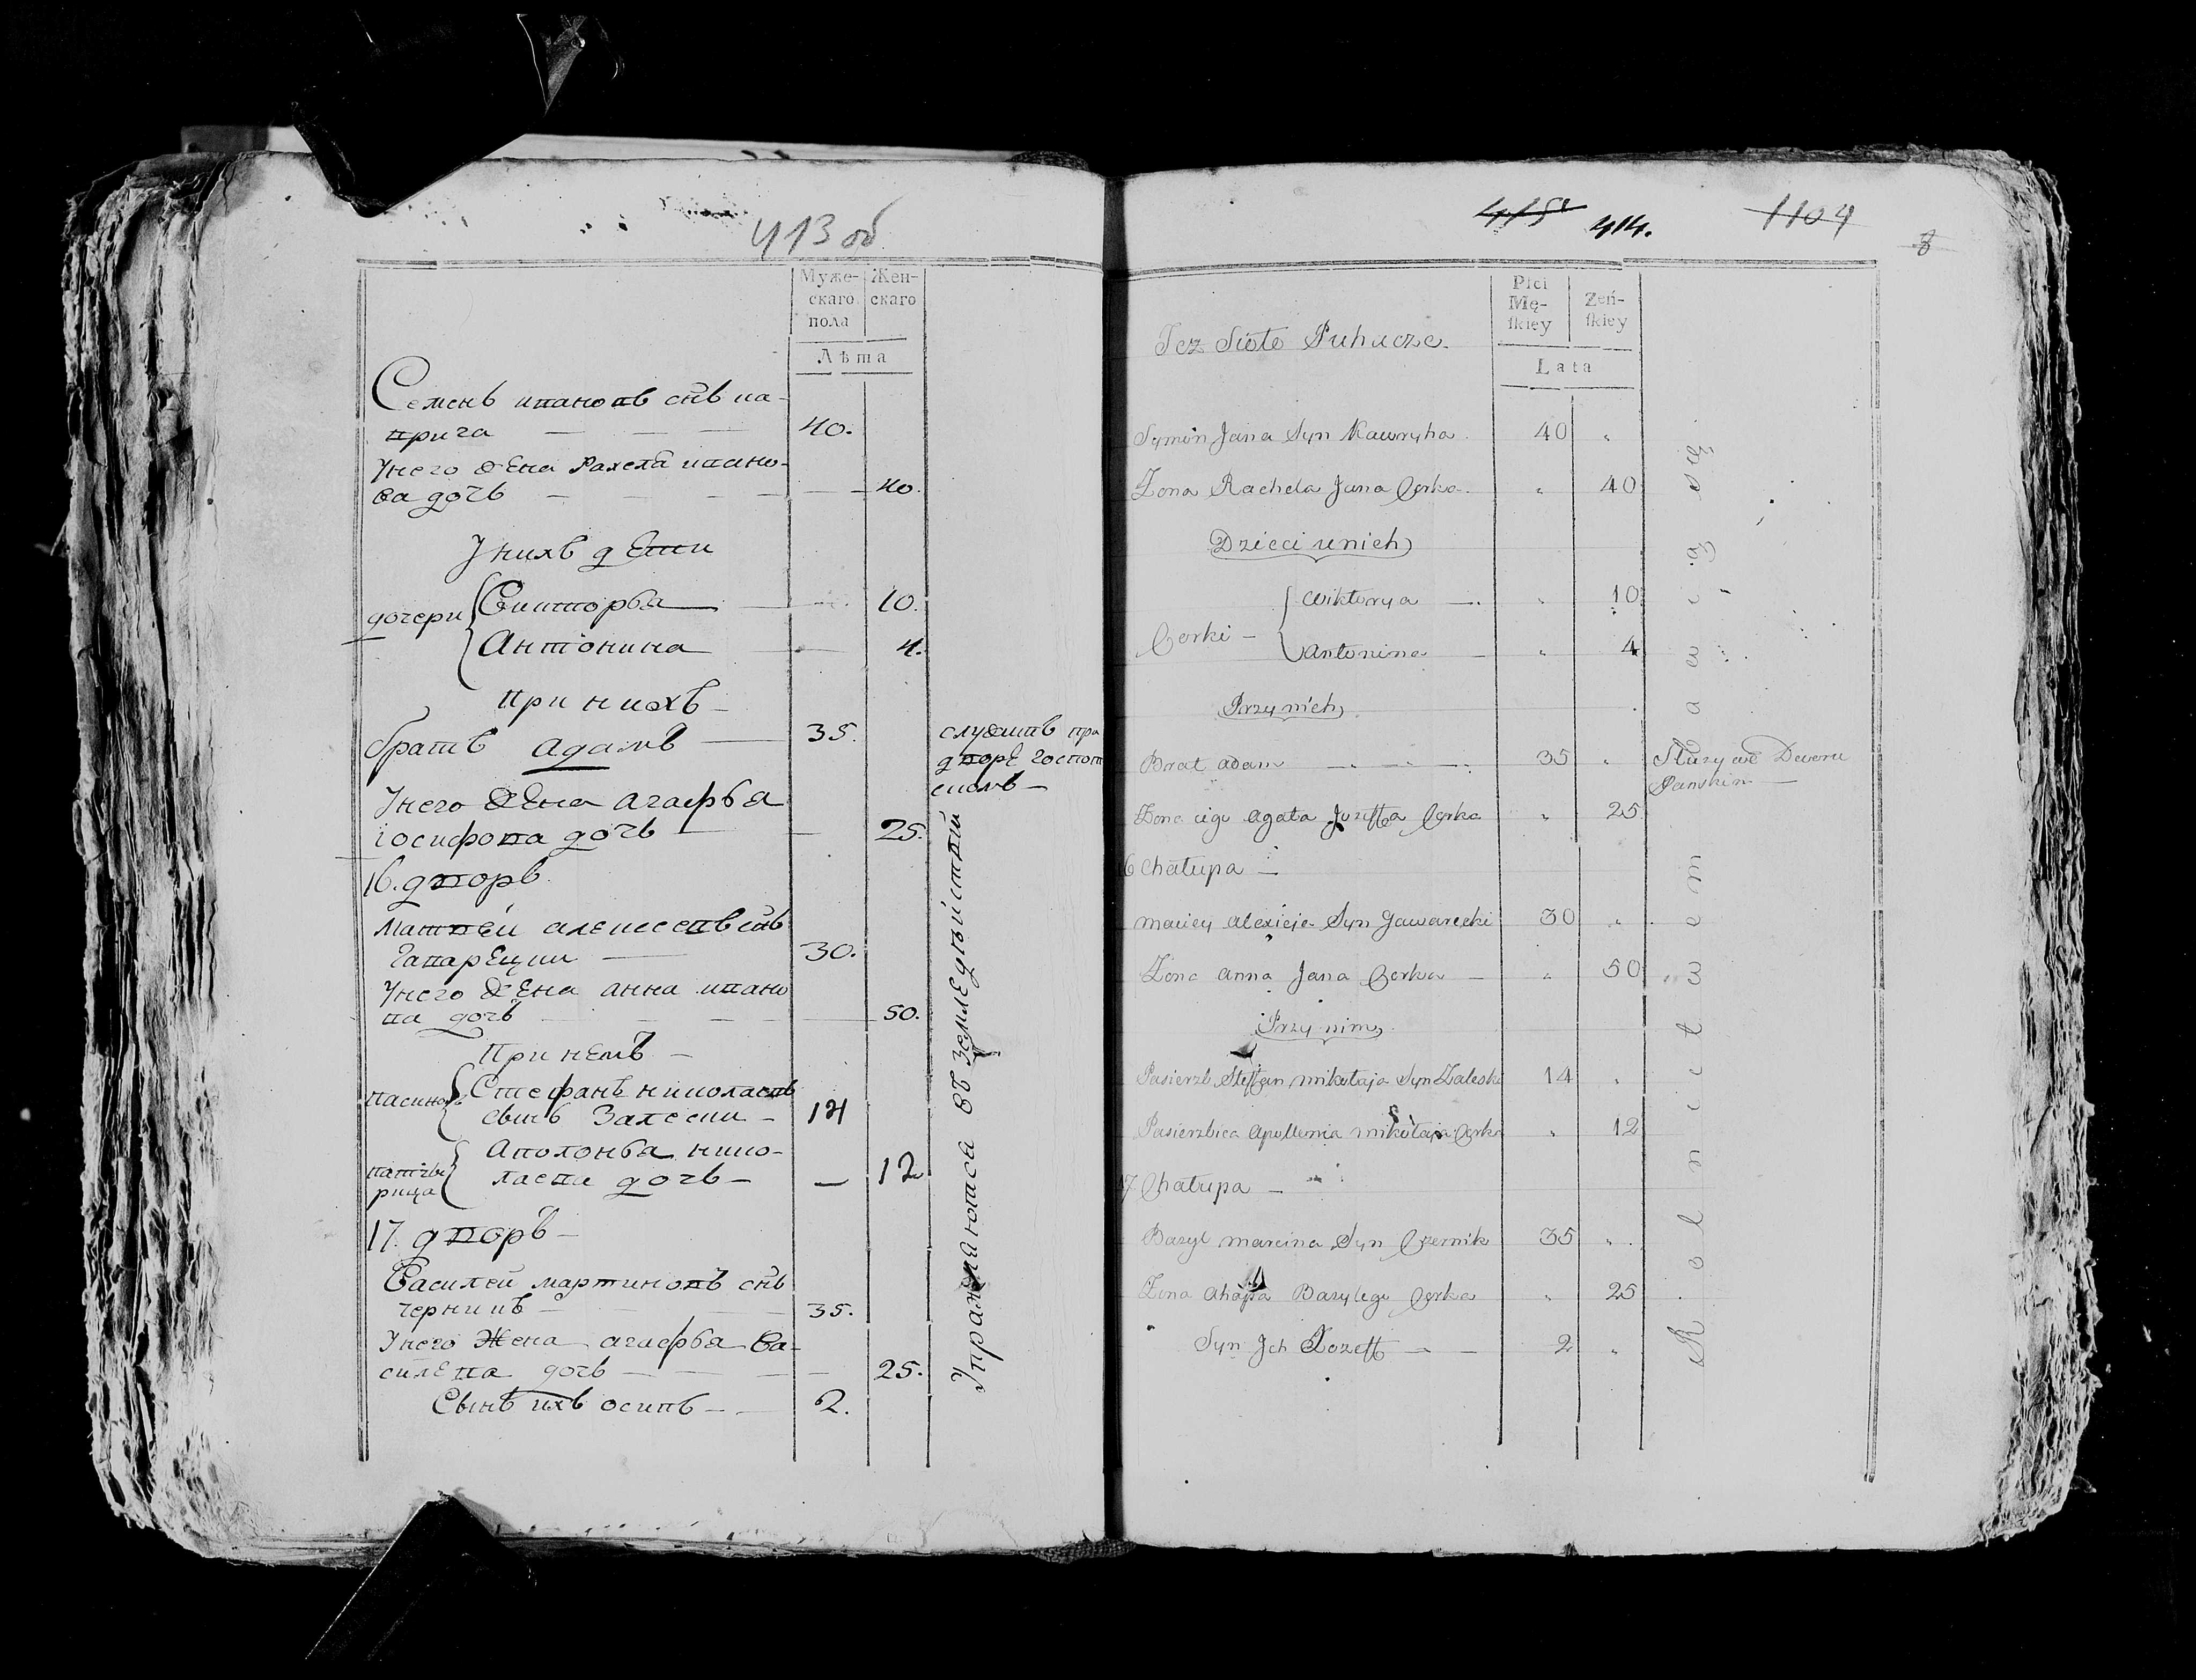 413 об
Муже-
скаго
пола
Жен-
скаго
Лѣта
Семенъ ивановъ снъ ка-
врига — — — 40.
У него жена Рахела ивано-
ва дочь — — — 40.
У нихъ дети
дочери
Викторья — 10.
Антонина — 4.
При нихъ —
братъ адамъ — 35.
служитъ при
дворе господ
скомъ —
У него жена агафья
иосифова дочь — 25.
16. дворъ
Матвей алексеевъ снъ
Гаварецки — 30.
У него жена анна ивано
ва дочь — — — 50.
При немъ —
пасинокъ
Стефанъ николаевъ
сынъ Залески — 14
патче
рица
Аполонья нико-
лаева дочь — — 12
17. дворъ —
Василей мартиновъ снъ
черникъ — 35.
У него Жена агафья Ва-
силева дочь — — — 25.
Сынъ ихъ осипъ — — 2.
Упражняются въ земледѣйствій
415 414. 1104
8
Płci
Mę-
ſkiey
Zeń-
ſkiey
Lata
Też Sioło Puhacze.
Symon Jana Syn Kawryha. 40 "
Zona Rachela Jana Corka. " 40
Dzieci unich
Corki —
Wiktorya — " 10
Antonina — " 4
Przy nich
Brat Adam — — — 35 "
Służy we Dworu
Panskim —
Zona iego Agata Jozeffa Corka " 25
16 Chałupa —
Maciey Alexieja Syn Gawarecki 30 "
Zona Anna Jana Corka — " 50
Przy nim
Pasierzb Steffan Mikołaja Syn Zaleski 14 "
Pasierzbica Apollonia Mikołaja Corka " 12
17 Chałupa —
Bazyl Marcina Syn Czernik 35 "
Zona Ahapa Bazylego Corka " 25
Syn Jch Jozeff — — 2 "
Rolnictwem bawią się